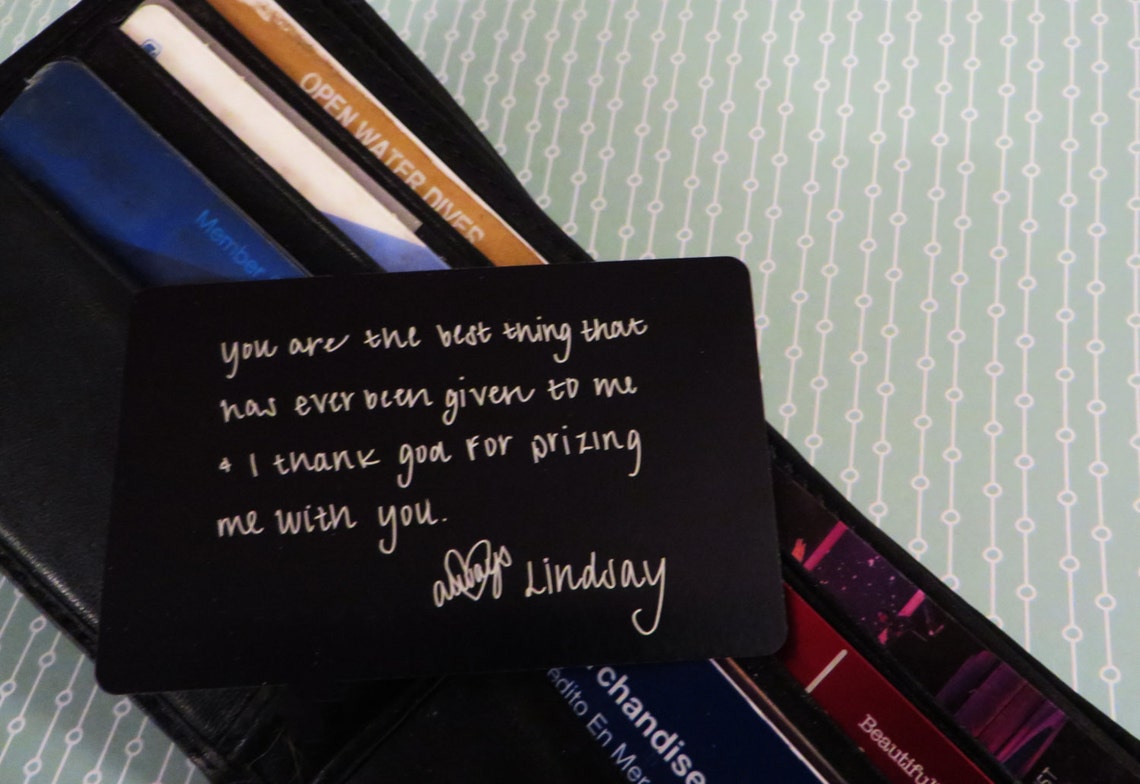 OPEN WATER DIVES
Member
you are the best thing that
has ever been given to me
& I thank god for prizing
me with you.
always Lindsay
chandise
edito En Mer
Beautiful